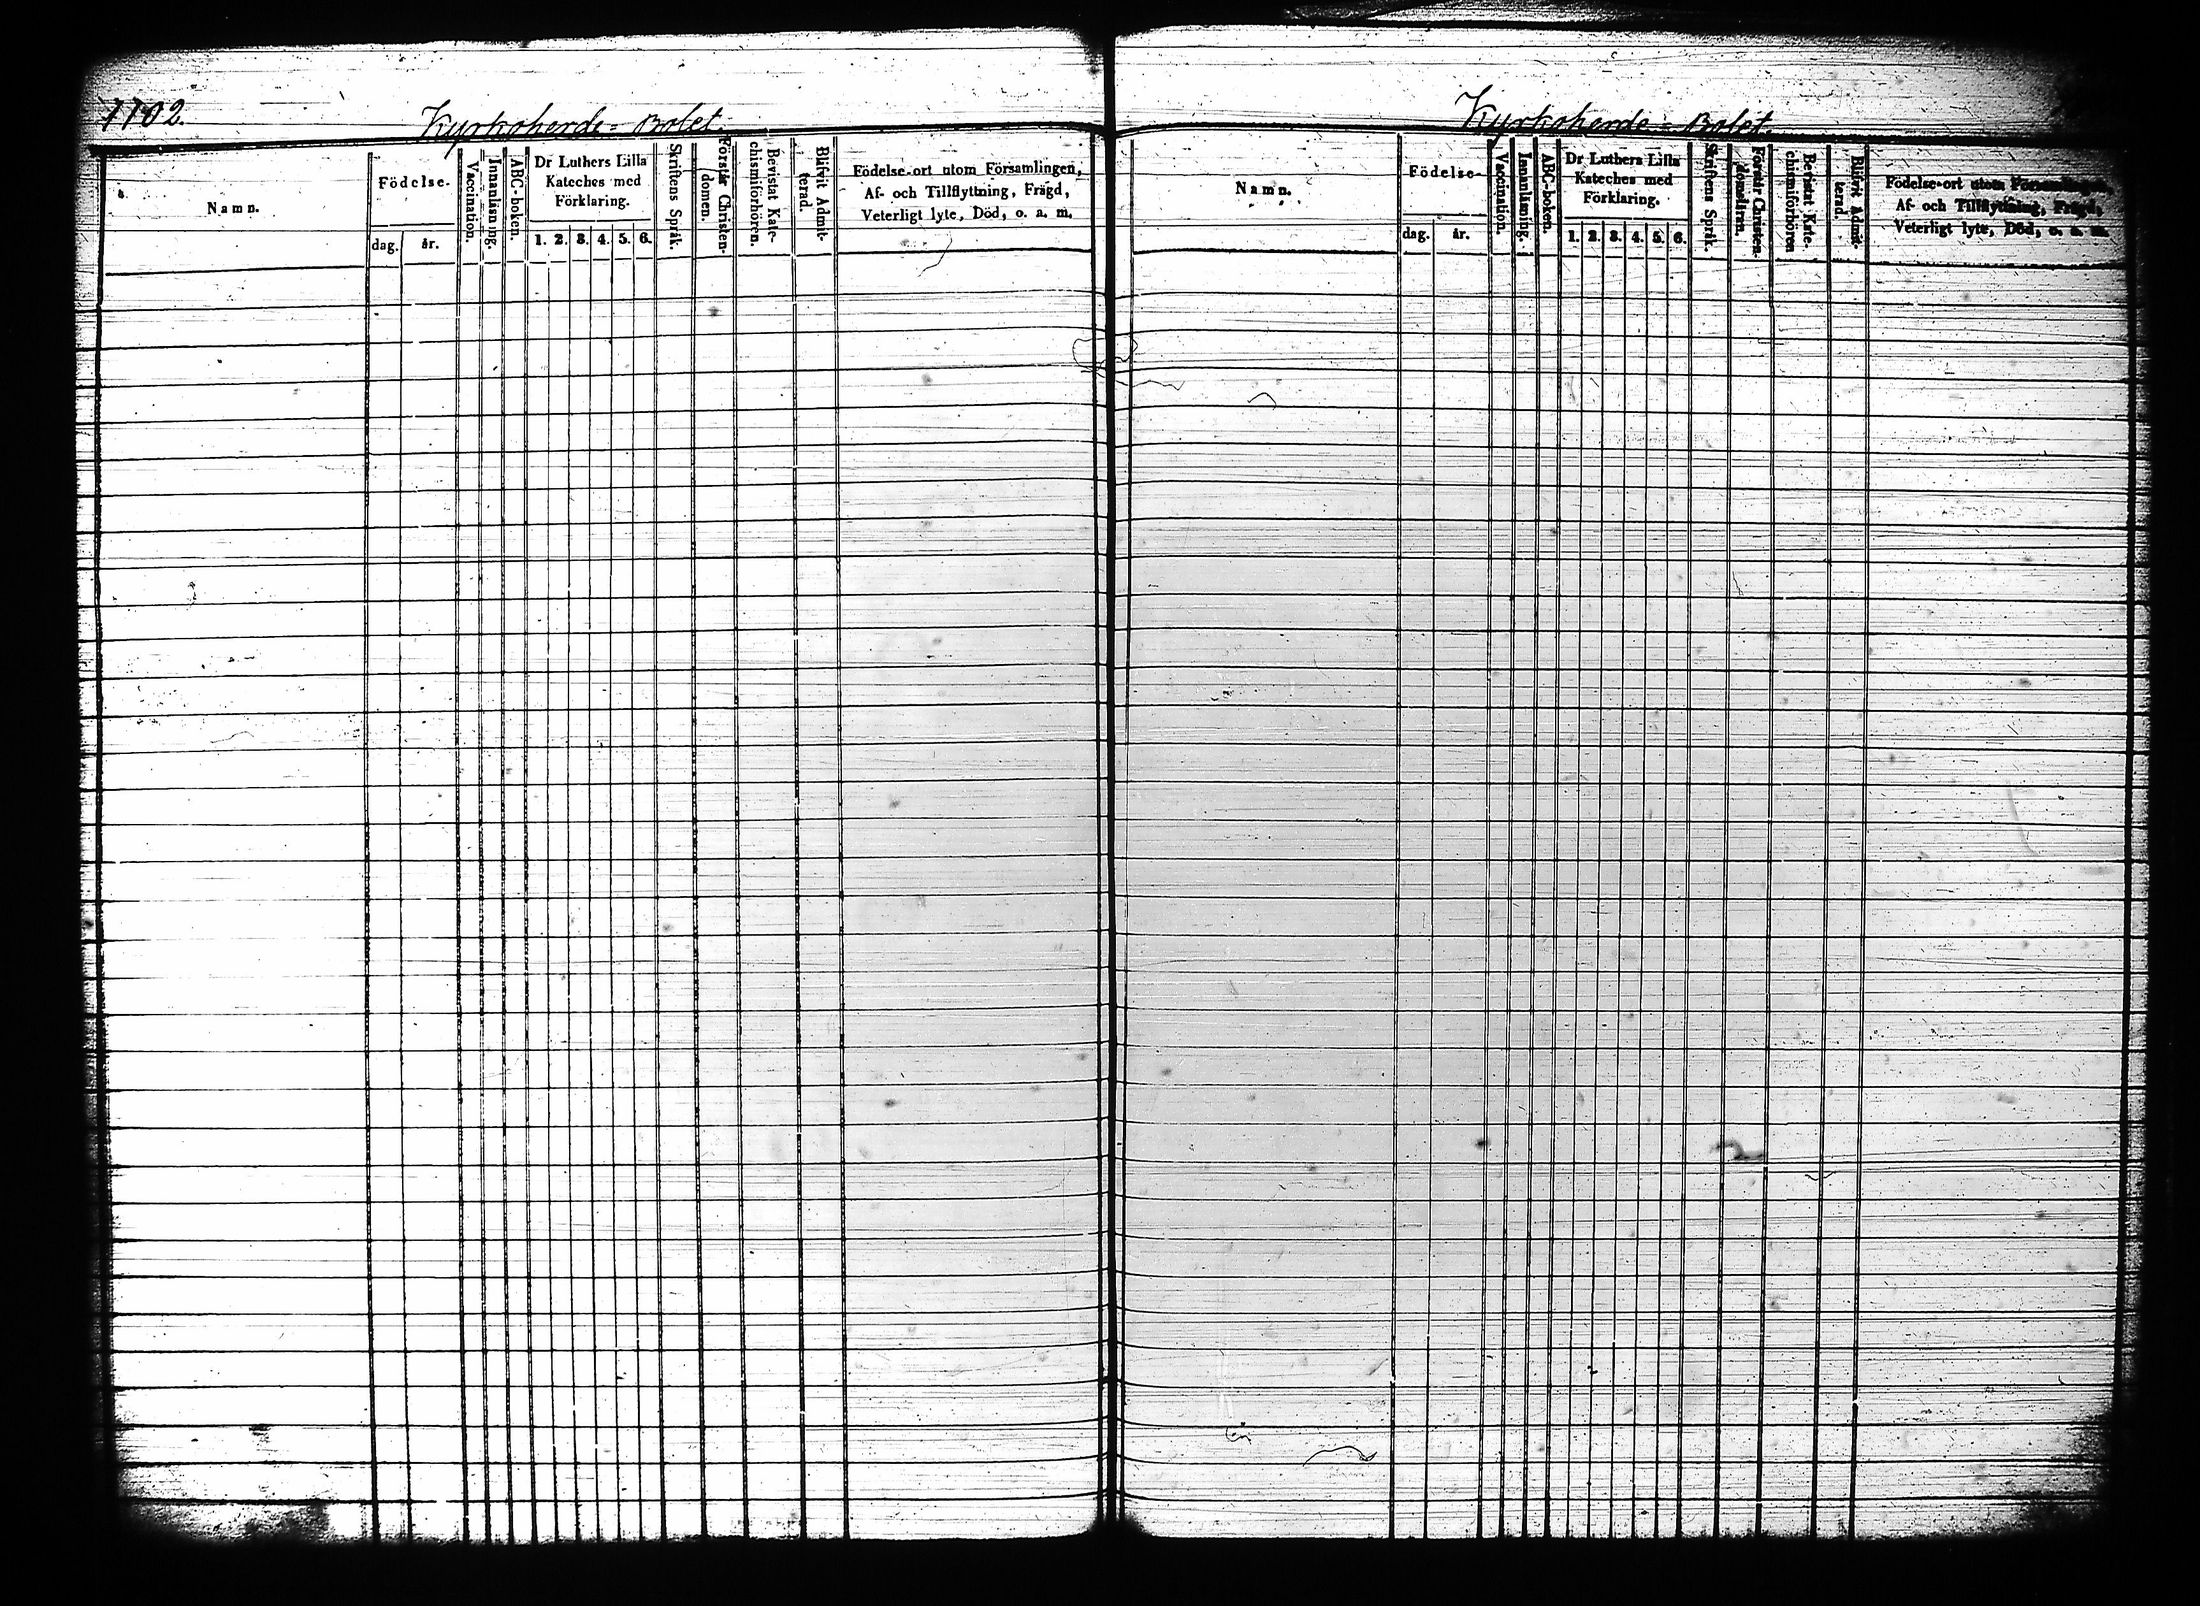 1102.
Kyrkoherde=Bolet.
Namn.
Födelse-
dag.
år.
Vaccination.
Innanläsning.
ABC-boken.
Dr Luthers Lilla
Kateches med
Förklaring.
1. 2. 3. 4. 5. 6.
Skriftens Språk.
Förstår Christen-
domen.
Bevistat Kate-
chismiförhören.
Blifvit Admit-
terad.
Födelse-ort utom Församlingen,
Af- och Tillflyttning, Frägd,
Veterligt lyte, Död, o. s. m.
Kyrkoherde=Bolet.
Namn.
Födelse-
dag.
år.
Vaccination.
Innanläsning.
ABC-boken.
Dr Luthers Lilla
Kateches med
Förklaring.
1. 2. 3. 4. 5. 6.
Skriftens Språk.
Förstår Christen-
domsläran.
Bevistat Kate-
chismiförhören
Blifvit Admit-
terad.
Födelse-ort utom Församlingen,
Af- och Tillflyttning, Frägd,
Veterligt lyte, Död, o. s. m.